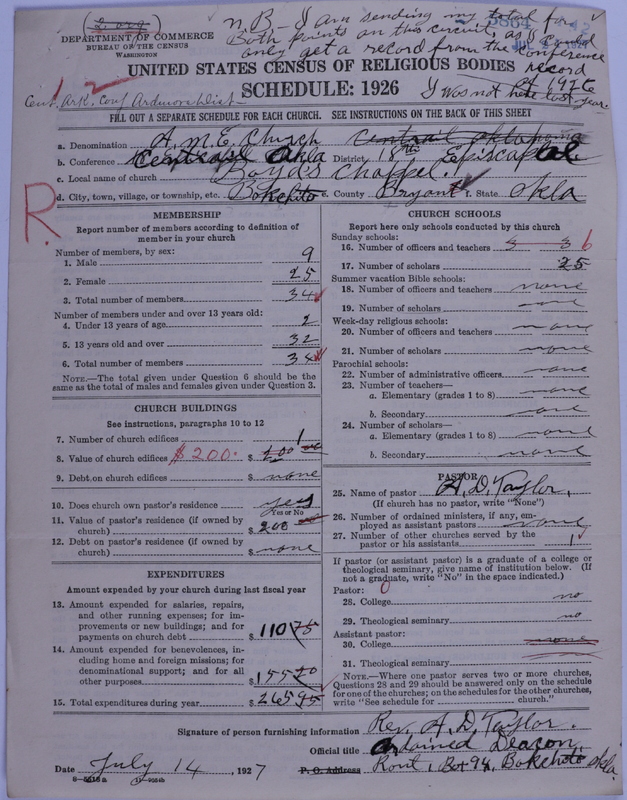 2. org
N.B. I am sending my total for
Both points on this circuit, as I could
only get a record from the Conference
record
of 1926
I was not here last year.
DEPARTMENT OF COMMERCE
BUREAU OF THE CENSUS
WASHINGTON
UNITED STATES CENSUS OF RELIGIOUS BODIES
SCHEDULE: 1926
Cent. Ark. Conf Ardmore Dist-
FILL OUT A SEPARATE SCHEDULE FOR EACH CHURCH. SEE INSTRUCTIONS ON THE BACK OF THIS SHEET
a. Denomination A.M.E. Church
b. Conference Central Okla District 18th Episcopal
c. Local name of church Boyd's Chappel.
d. City, town, village, or township, etc. Bokchito e. County Bryant f. State Okla
R.
MEMBERSHIP
Report number of members according to definition of
member in your church
Number of members, by sex:
1. Male 9
2. Female 25
3. Total number of members 34
Number of members under and over 13 years old:
4. Under 13 years of age 2
5. 13 years old and over 32
6. Total number of members 34
NOTE.—The total given under Question 6 should be the
same as the total of males and females given under Question 3.
CHURCH BUILDINGS
See instructions, paragraphs 10 to 12
7. Number of church edifices 1
8. Value of church edifices $200. $ 200 00
9. Debt on church edifices $ none
10. Does church own pastor's residence yes
Yes or No
11. Value of pastor's residence (if owned by
church) $ 200
12. Debt on pastor's residence (if owned by
church) $ none
EXPENDITURES
Amount expended by your church during last fiscal year
13. Amount expended for salaries, repairs,
and other running expenses; for im-
provements or new buildings; and for
payments on church debt $ 110 75
14. Amount expended for benevolences, in-
cluding home and foreign missions; for
denominational support; and for all
other purposes $ 155 20
15. Total expenditures during year $ 265 95
CHURCH SCHOOLS
Report here only schools conducted by this church
Sunday schools:
16. Number of officers and teachers 3 3 6
17. Number of scholars 25
Summer vacation Bible schools:
18. Number of officers and teachers none
19. Number of scholars none
Week-day religious schools:
20. Number of officers and teachers none
21. Number of scholars none
Parochial schools:
22. Number of administrative officers none
23. Number of teachers—
a. Elementary (grades 1 to 8) none
b. Secondary none
24. Number of scholars—
a. Elementary (grades 1 to 8) none
b. Secondary none
PASTOR
25. Name of pastor A. D. Taylor,
(If church has no pastor, write "None")
26. Number of ordained ministers, if any, em-
ployed as assistant pastors none
27. Number of other churches served by the
pastor or his assistants 1
If pastor (or assistant pastor) is a graduate of a college or
theological seminary, give name of institution below. (If
not a graduate, write "No" in the space indicated.)
Pastor: 0
28. College no
29. Theological seminary no
Assistant pastor:
30. College none
31. Theological seminary
NOTE.—Where one pastor serves two or more churches,
Questions 28 and 29 should be answered only on the schedule
for one of the churches; on the schedules for the other churches,
write "See schedule for church."
Signature of person furnishing information Rev. A. D. Taylor.
Official title Ordained Deacon,
Date July 14, 1927 P. O. Address Rout, Box 94, Bokchito Okla.